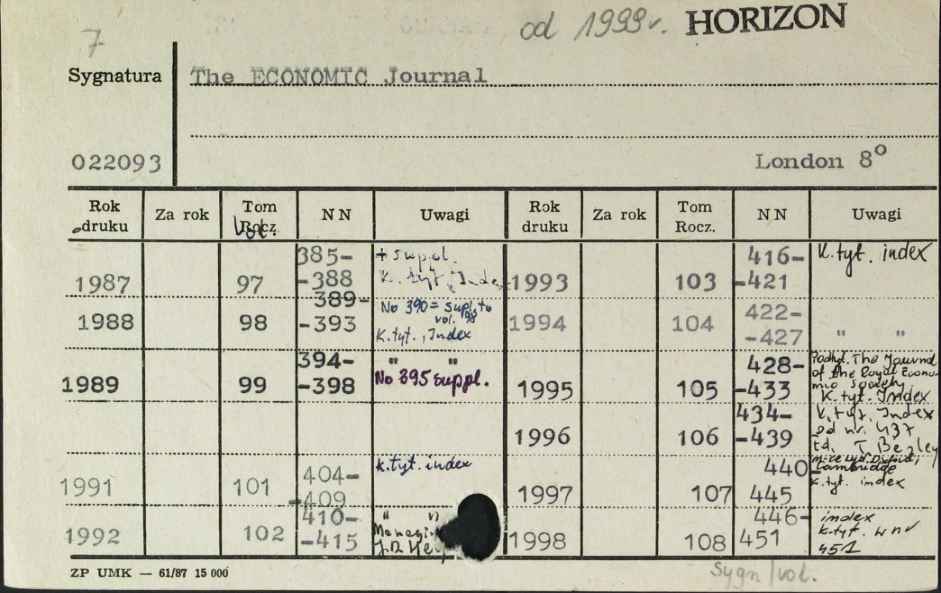 7
od 1999r. HORIZON
Sygnatura The ECONOMIC Journal
022093 London 8o
Rok druku Za rok Tom Rocz. Vol. NN Uwagi Rok druku Za rok Tom Rocz. NN Uwagi
1987 97 385-
-388 + suppl.
K. tyt, Index
1988 98 389-
-393 No 390 = supl. to
vol.
K.tyt., Index
1989 99 394-
-398 " "
No 395 suppl.
1991 101 404-
-409 k.tyt. index
1992 102 410-
-415 " "
1993 103 416-
-421 K.tyt. index
1994 104 422-
-427 " "
1995 105 428-
-433 Podtyt. The Journal
of the Royal Econo-
mic society
K.tyt. Index
1996 106 434-
-439 K.tyt. Index
od nr. 437
1997 107 440-
445 Cambridge
K.tyt. index
1998 108 446-
451 index
k.tyt. w nr
451
ZP UMK — 61/87 15 000
Sygn/vol.